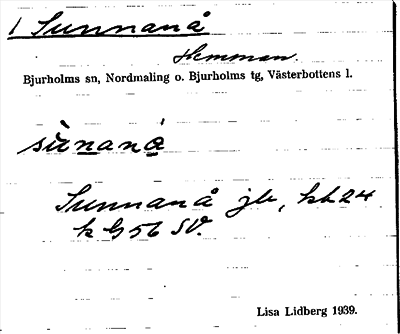 1 Sunnanå
Hemman.
Bjurholms sn, Nordmaling o. Bjurholms tg, Västerbottens l.
sùnaná
Sunnanå jb, kb 24
k G 56 SV.
Lisa Lidberg 1939.